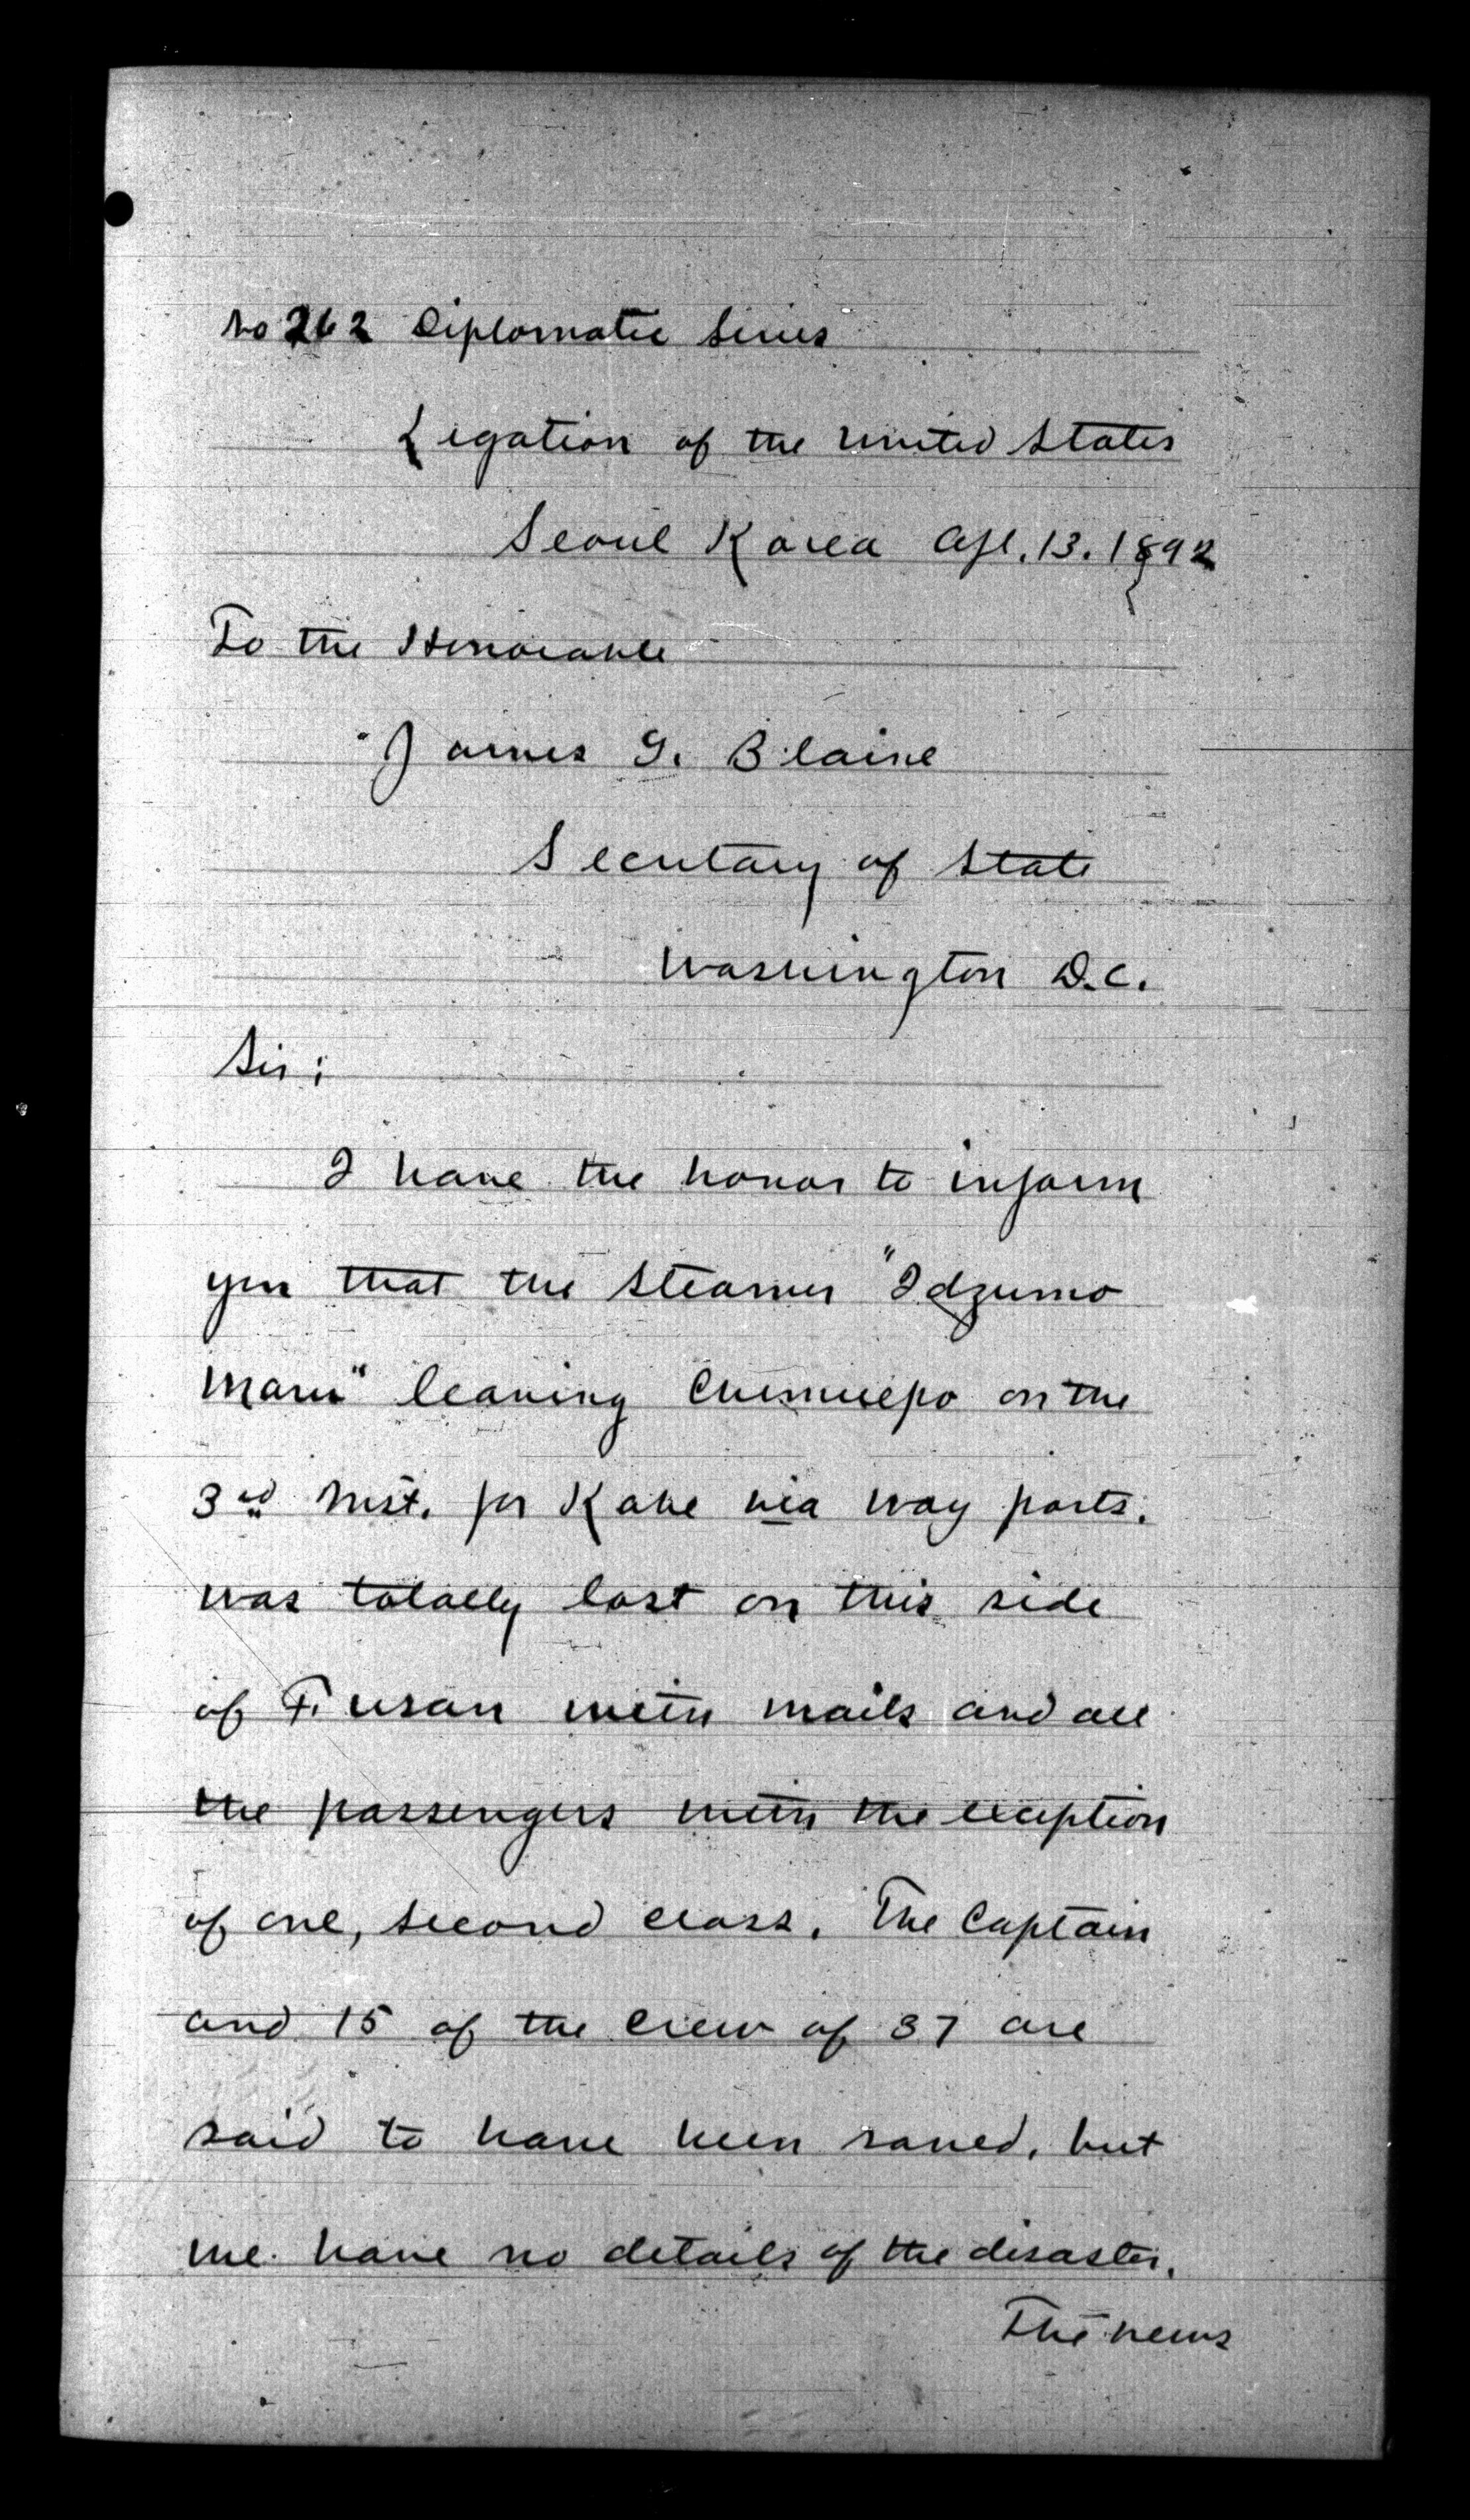 No 262 Diplomatic Series
Legation of the United States
Seoul Korea Apl. 13. 1892
To the Honorable
James G. Blaine
Secretary of State
Washington D.C.
Sir;
I have the honor to inform
you that the steamer "Idzumo
Maru" leaving Chemulpo on the
3rd Inst. for Kobe via way ports.
was totally lost on this side
of Fusan with mails and all
the passengers with the exception
of one, second class. The Captain
and 15 of the crew of 37 are
said to have been saved, but
we have no details of the disaster.
The news